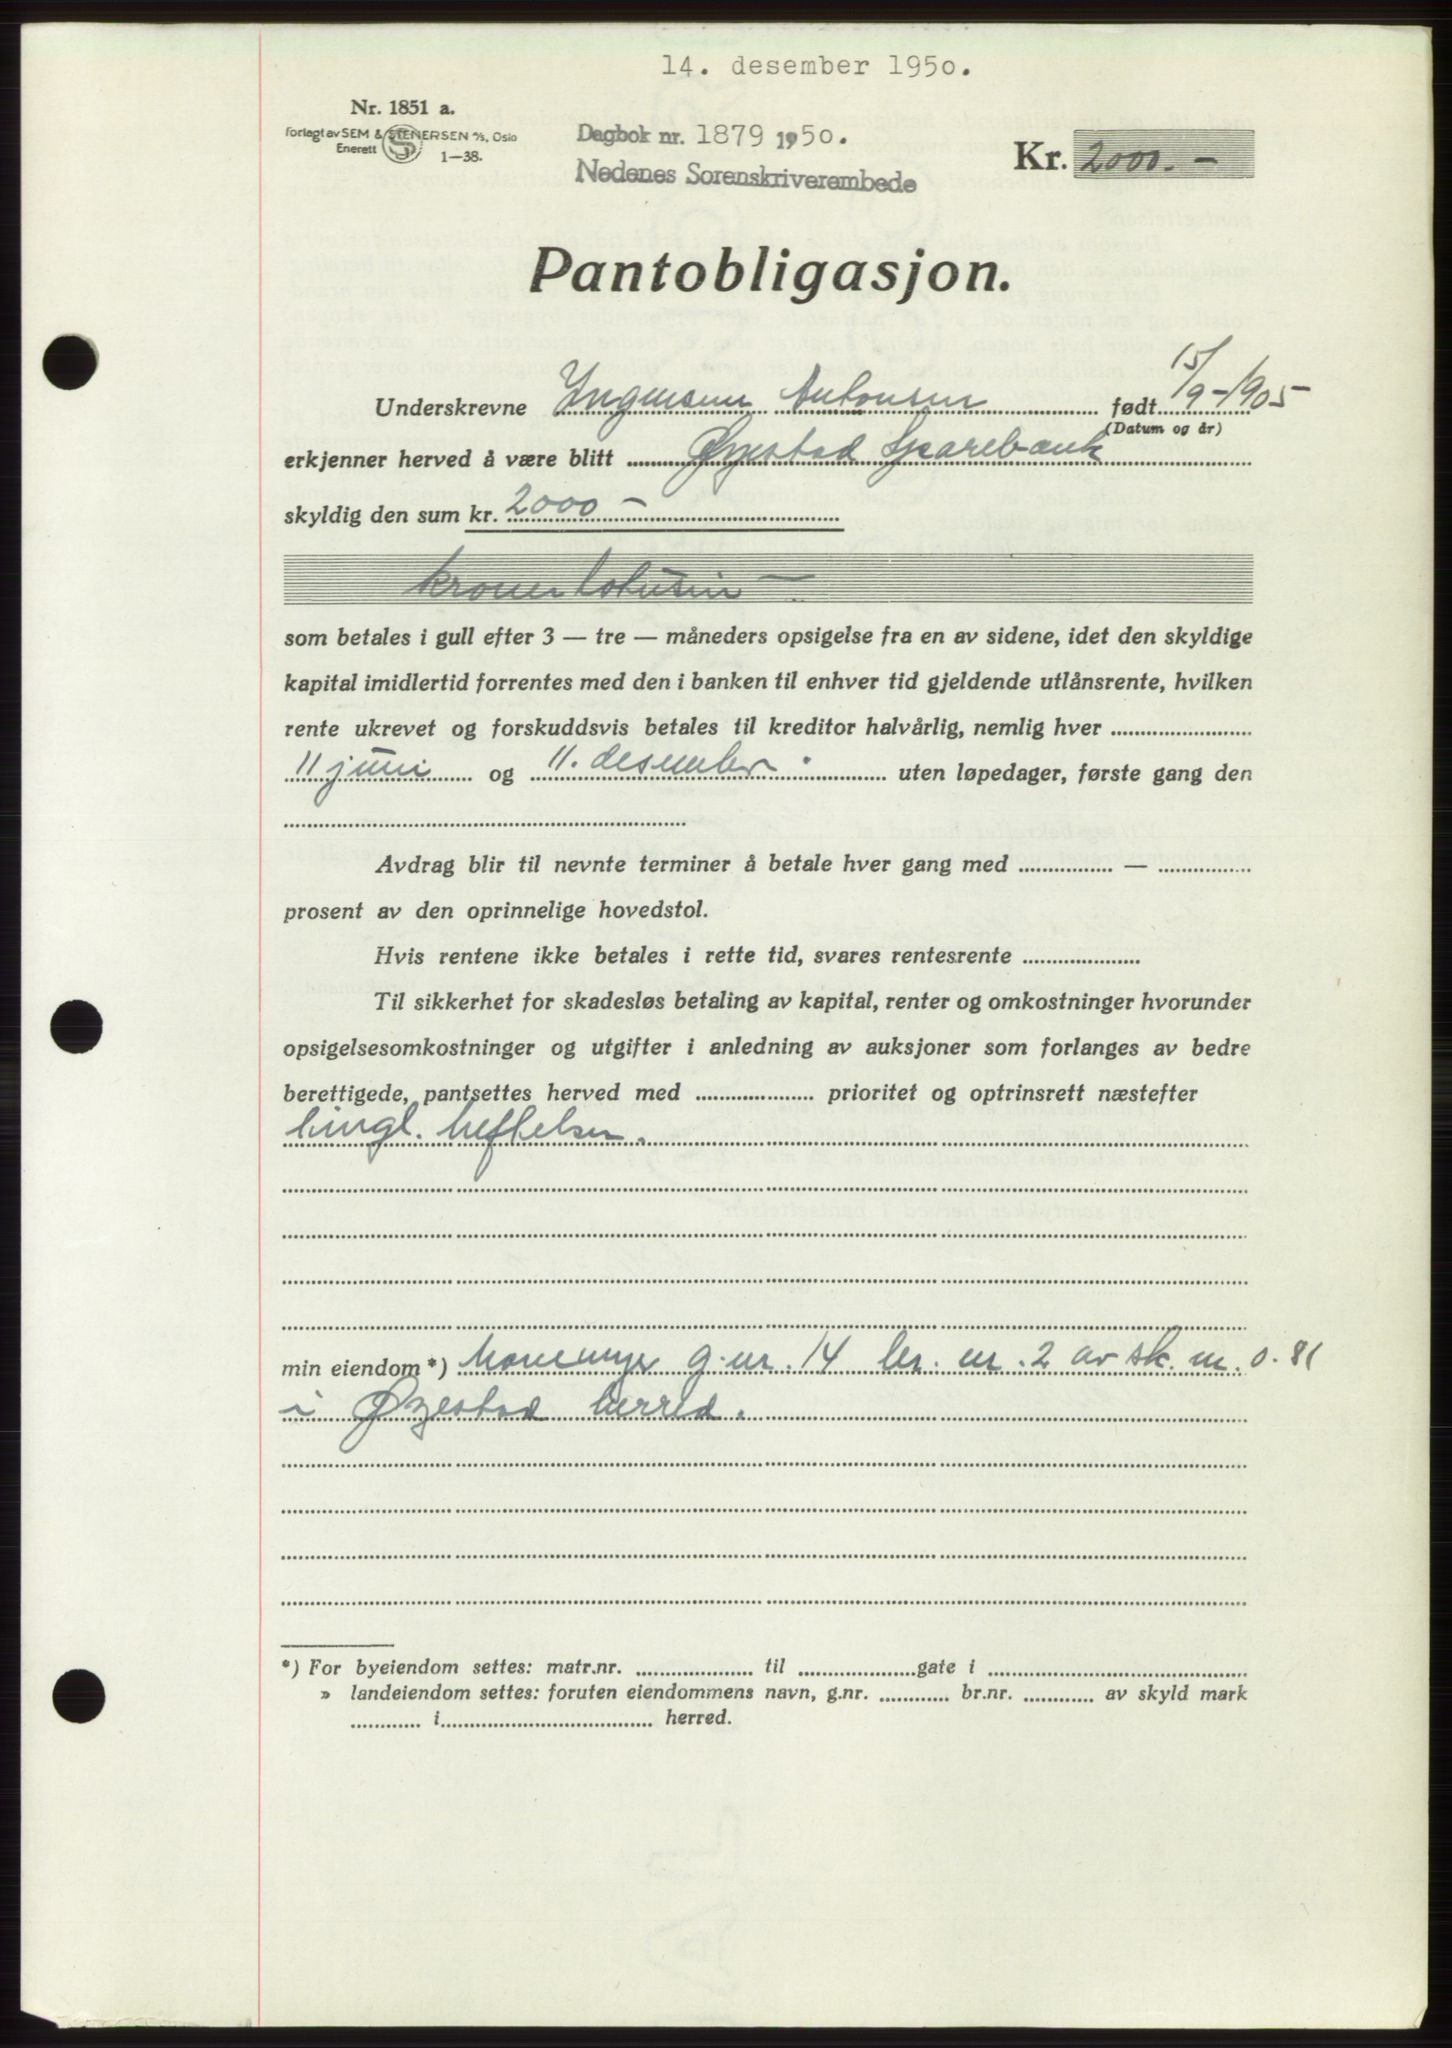 14. desember 1950.
Nr. 1851 a.
Forlagt av SEM & STENERSEN A/S, Oslo
Enerett
1—38.
Dagbok nr. 1879 1950.
Nedenes Sorenskriverembede
Kr. 2000.-
Pantobligasjon.
Underskrevne Ingemann Antonsen født 15/9-1905
(Datum og år)
erkjenner herved å være blitt Øyestad Sparebank
skyldig den sum kr. 2000 -
kroner totusin —
som betales i gull efter 3 — tre — måneders opsigelse fra en av sidene, idet den skyldige
kapital imidlertid forrentes med den i banken til enhver tid gjeldende utlånsrente, hvilken
rente ukrevet og forskuddsvis betales til kreditor halvårlig, nemlig hver
11 juni og 11. desember uten løpedager, første gang den
Avdrag blir til nevnte terminer å betale hver gang med — 
prosent av den oprinnelige hovedstol.
Hvis rentene ikke betales i rette tid, svares rentesrente
Til sikkerhet for skadesløs betaling av kapital, renter og omkostninger hvorunder
opsigelsesomkostninger og utgifter i anledning av auksjoner som forlanges av bedre
berettigede, pantsettes herved med prioritet og optrinsrett næstefter
tingl. heftelser.
min eiendom *) g.nr. 14 br. nr. 2 av sk. m. 0.81
i Øyestad herred.
*) For byeiendom settes: matr.nr. til gate i
» landeiendom settes: foruten eiendommens navn, g.nr. br.nr. av skyld mark
i herred.